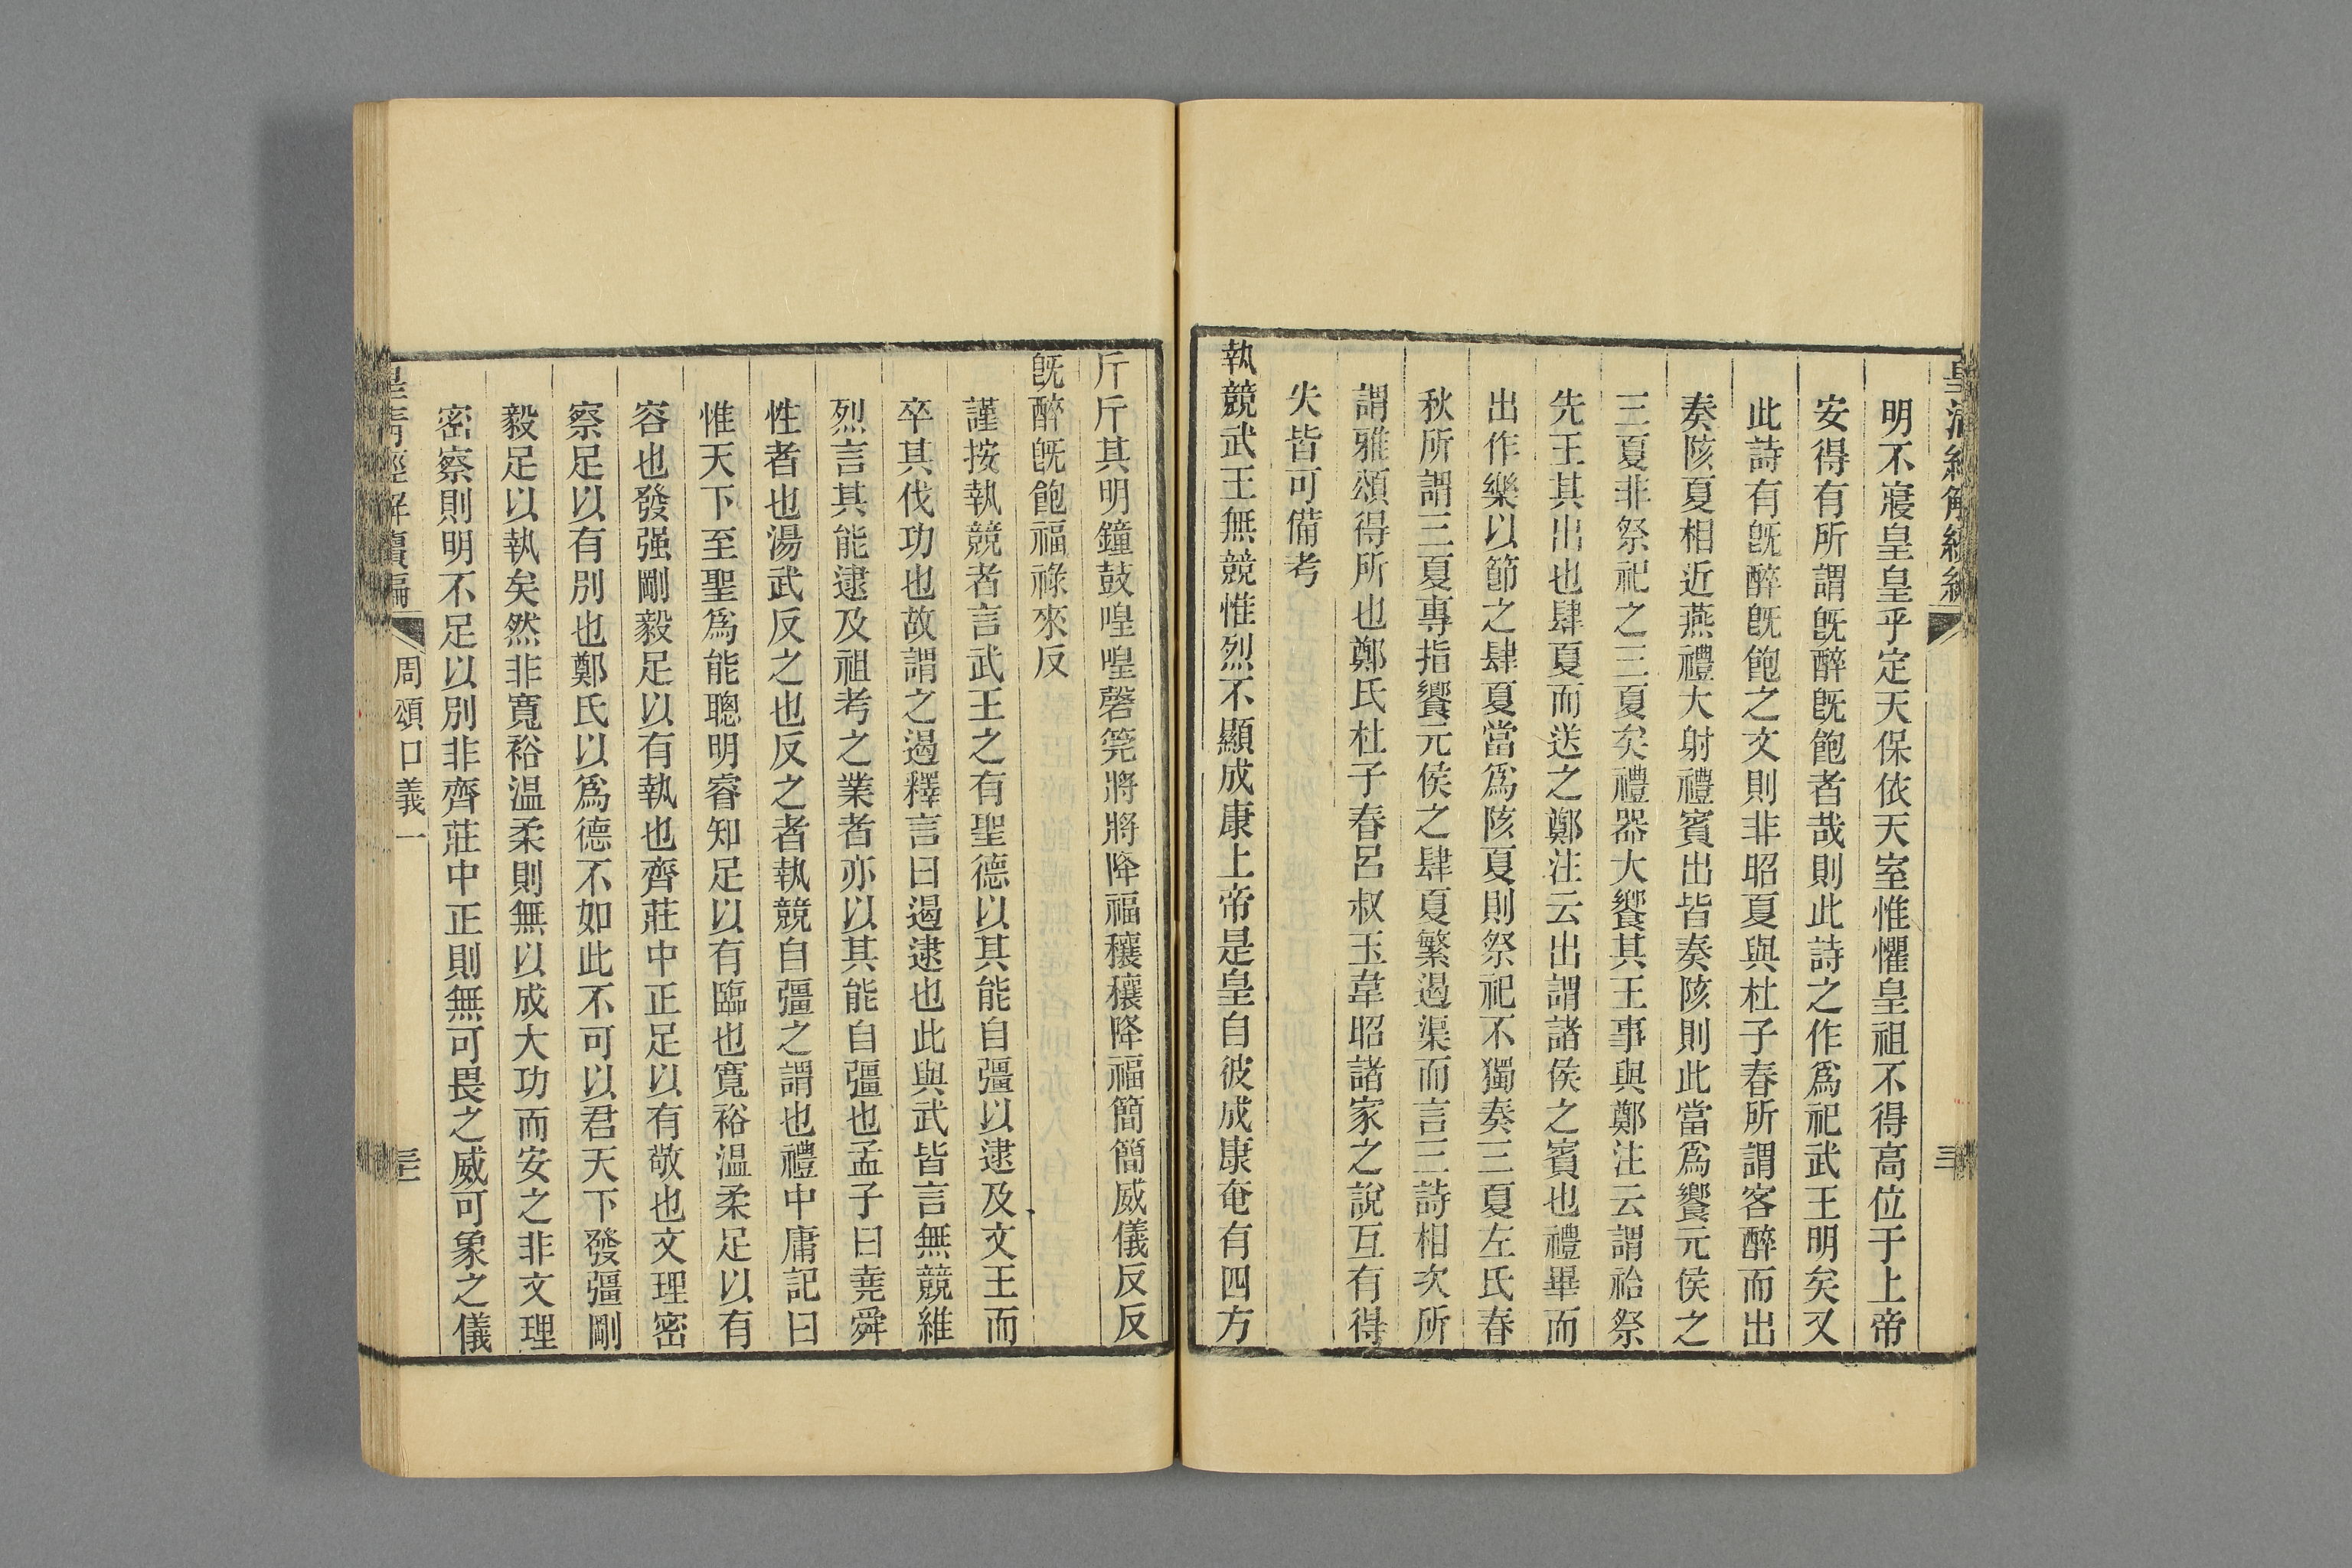 明不寢皇皇乎定天保依天室惟懼皇祖不得高位于上帝
安得有所謂旣醉旣飽者哉則此詩之作爲祀武王明矣又
此詩有旣醉旣飽之文則非昭夏與杜子春所謂客醉而出
奏陔夏相近燕禮大射禮賓出皆奏陔則此當爲饗元侯之
三夏非祭祀之三夏矣禮器大饗其王事與鄭注云謂祫祭
先王其出也肆夏而送之鄭注云出謂諸侯之賓也禮畢而
出作樂以節之肆夏當爲陔夏則祭祀不獨奏三夏左氏春
秋所謂三夏專指饗元侯之肆夏繁遏渠而言三詩相次所
謂雅頌得所也鄭氏杜子春呂叔玉韋昭諸家之說互有得
失皆可備考
執競武王無競惟烈不顯成康上帝是皇自彼成康奄有四方
斤斤其明鐘鼓喤喤磬筦將將降福穰穰降福簡簡威儀反反
旣醉旣飽福祿來反
謹按執競者言武王之有聖德以其能自彊以逮及文王而
卒其伐功也故謂之遏釋言曰遏逮也此與武皆言無競維
烈言其能逮及祖考之業者亦以其能自彊也孟子曰堯舜
性者也湯武反之也反之者執競自彊之謂也禮中庸記曰
惟天下至聖爲能聰明睿知足以有臨也寬裕溫柔足以有
容也發强剛毅足以有執也齊莊中正足以有敬也文理密
察足以有別也鄭氏以爲德不如此不可以君天下發彊剛
毅足以執矣然非寬裕溫柔則無以成大功而安之非文理
密察則明不足以別非齊莊中正則無可畏之威可象之儀
皇淸經解續編
周頌口義一